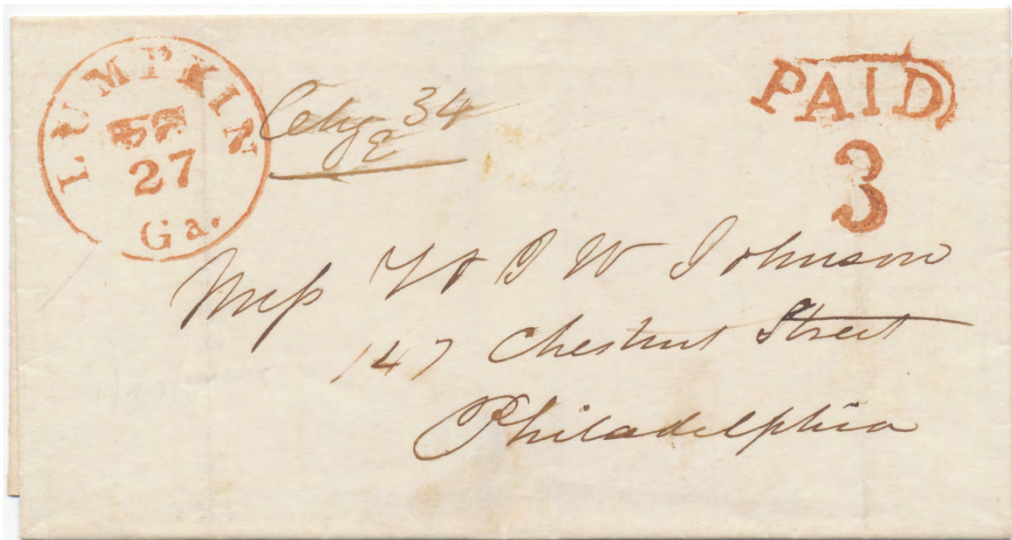 LUMPKIN
27
Ga.
Chg 34
PAID
3
Mess W Johnson
147 Chestnut Street
Philadelphia